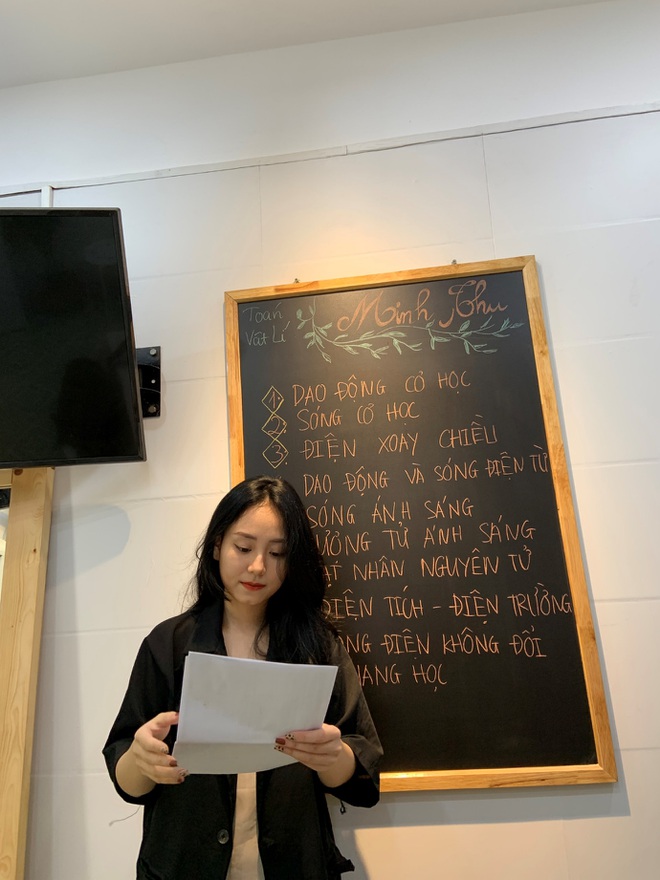 Toán
Vật Lí
Minh Thu
1 DAO ĐỘNG CƠ HỌC
2 SÓNG CƠ HỌC
3 ĐIỆN XOAY CHIỀU
DAO ĐỘNG VÀ SÓNG ĐIỆN TỪ
SÓNG ÁNH SÁNG
TỬ ÁNH SÁNG
NHÂN NGUYÊN TỬ
ĐIỆN TÍCH - ĐIỆN TRƯỜNG
ĐIỆN KHÔNG ĐỔI
HỌC